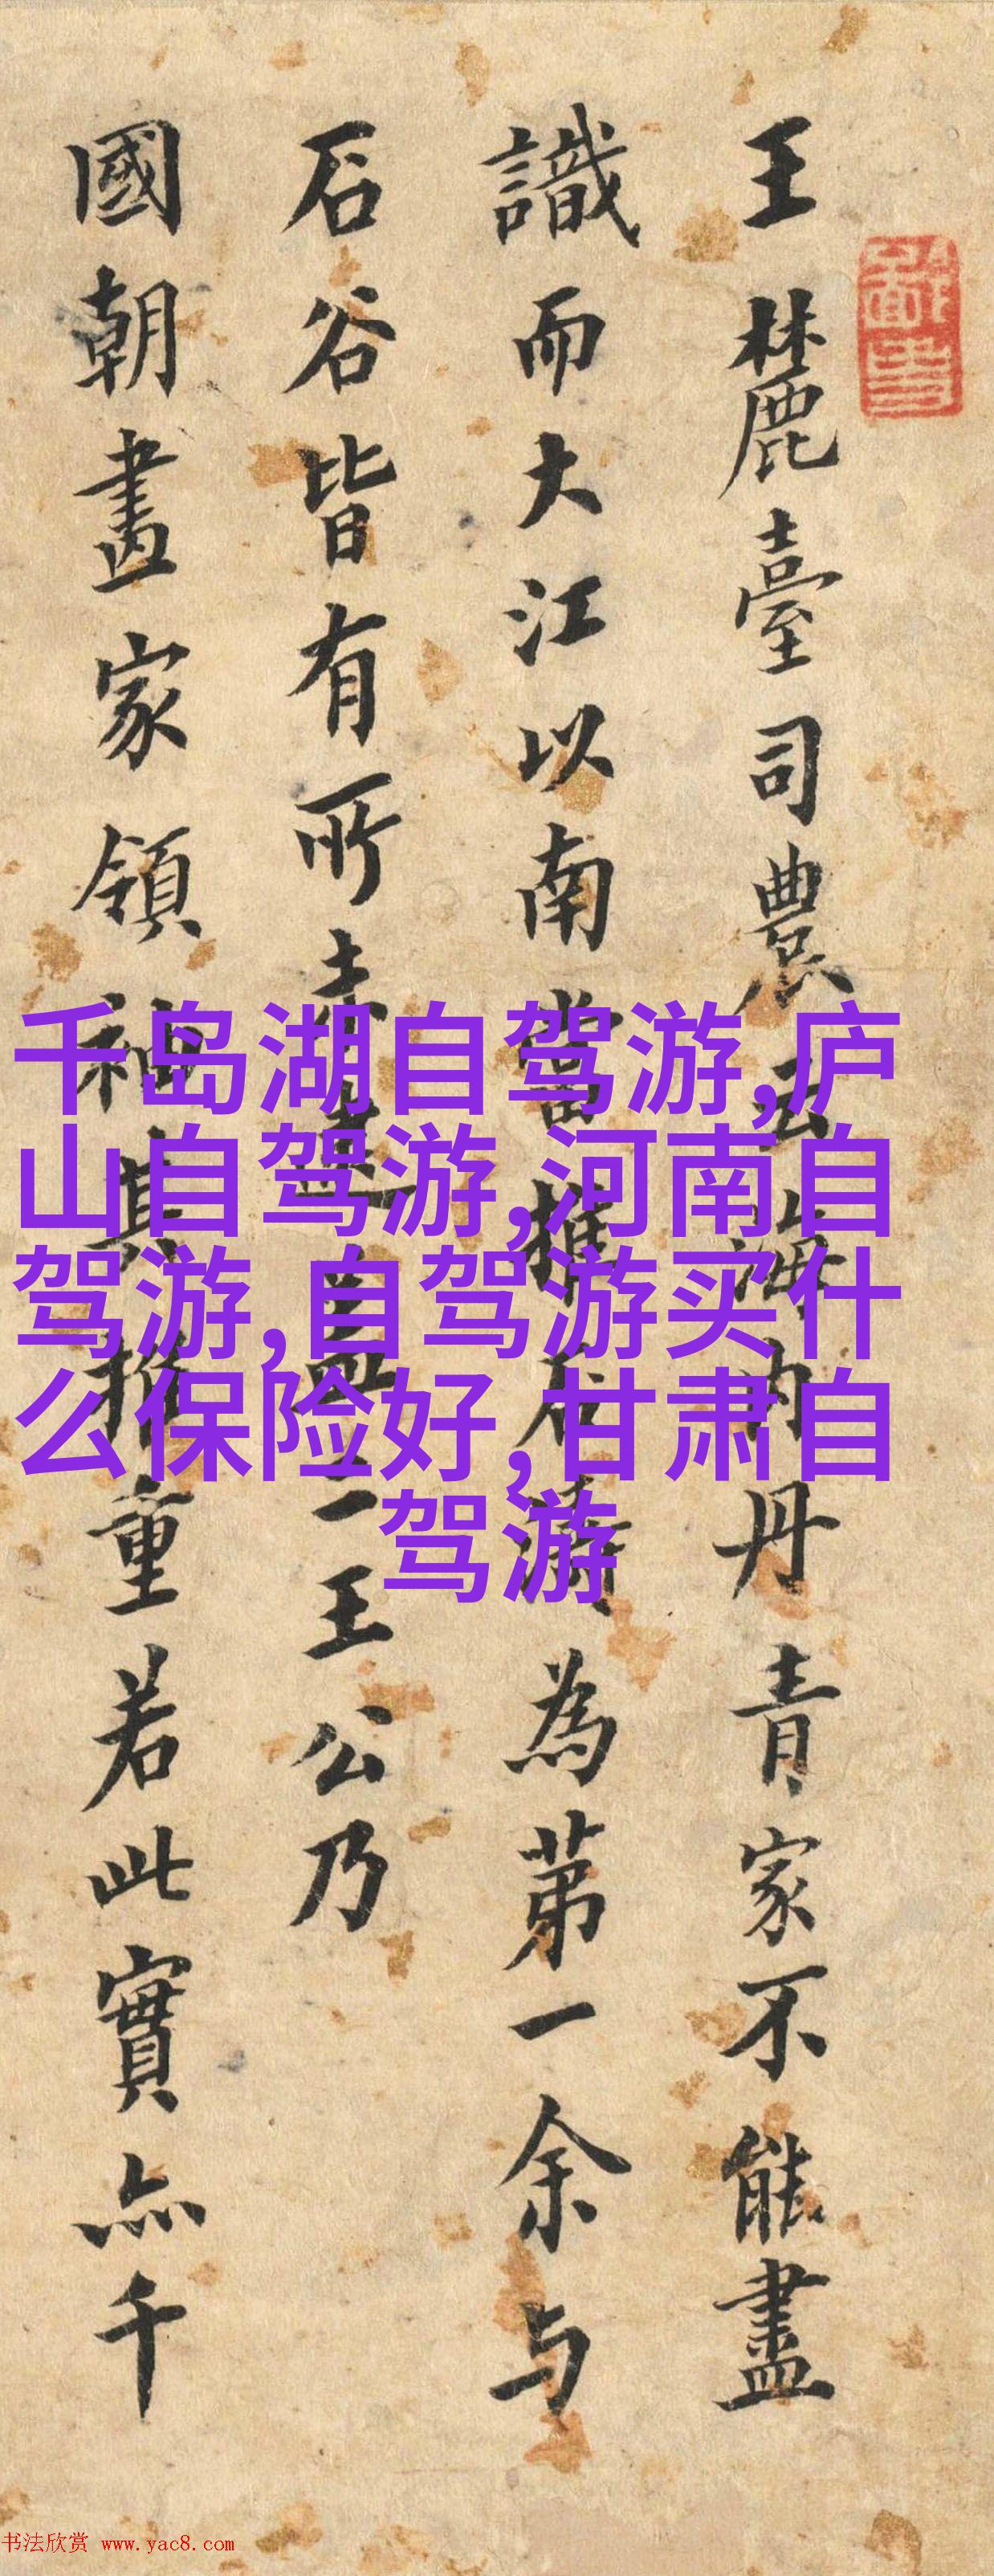 王麓臺司農云海内丹青家不能盡
識而大江以南當推石濤為第一余与
石谷皆有所未逮盖二王公乃
國朝畫家領袖其推重若此實亦千
千岛湖自驾游,庐
山自驾游,河南自
驾游,自驾游买什
么保险好,甘肃自
驾游
书法欣赏 www.yac8.com